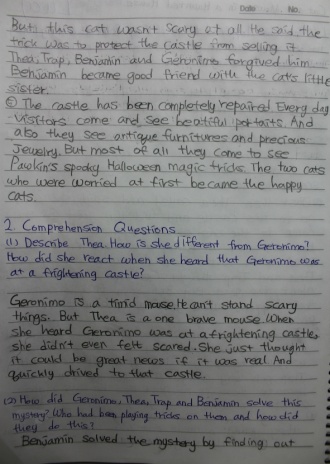 Date No.
But this cat wasn't scary at all. He said the
trick was to protect the castle from selling it.
Thea, Trap, Benjamin and Geronimo forgived him
Benjamin became good friend with the cats little
sister.
⑤ The castle has been completely repaired. Every day
visitors come and see beatiful portraits. And
also they see antique furnitures and precious
Jewelry. But most of all they come to see
Pawkin's spooky Halloween magic tricks. The two cats
who were worried at first became the happy
cats.
2. Comprehension Questions
(1) Describe Thea. How is she different from Geronimo?
How did she react when she heard that Geronimo was
at a frightening castle?
Geronimo is a timid mouse. He can't stand scary
things. But Thea is a one brave mouse. When
she heard Geronimo was at a frightening castle,
she didn't even felt scared. She just thought
it could be great news if it was real And
quickly drived to that castle.
(2) How did Geronimo, Thea, Trap and Benjamin solve this
mystery? Who had been playing tricks on them and how did
they do this?
Benjamin solved the mystery by finding out